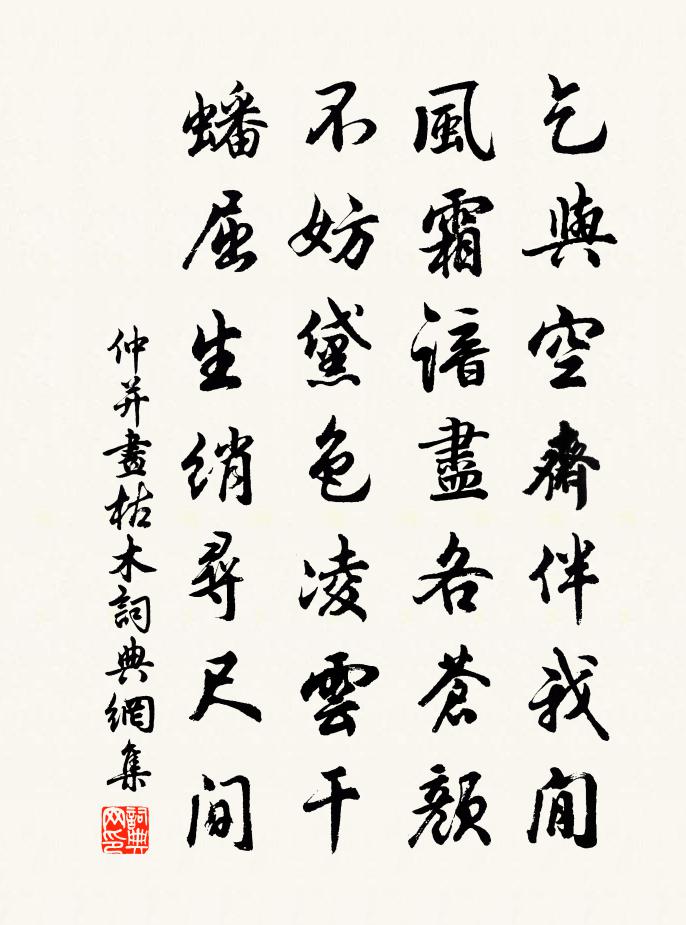 乞與空齋伴我閒
風霜諳盡各蒼顏
不妨黛色凌雲干
蟠屈生綃尋尺间
仲并畫枯木詞典網集
詞典
网印